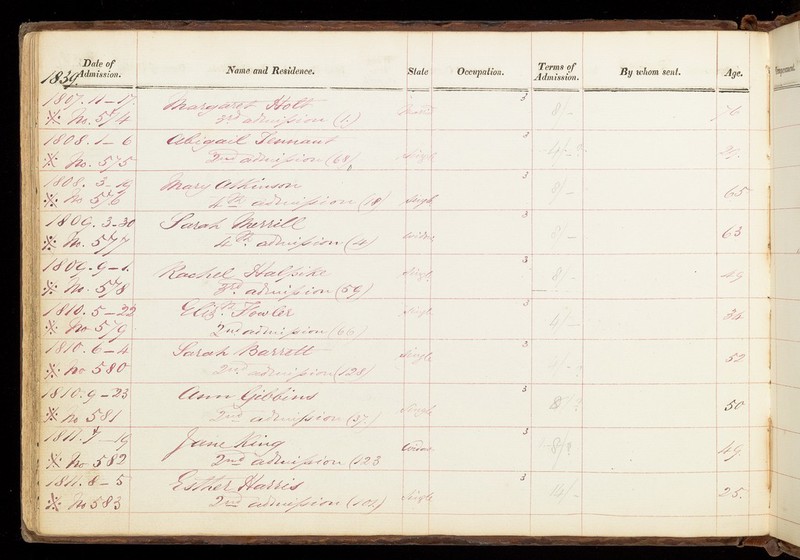 1839
Date of Admission. Name and Residence. State Occupation. Terms of Admission. By whom sent. Age.
1807. 11-17 Margaret Holt 3 8/-
※ No. 574 3rd admission 76
1808. 1-6 Abigail Tennant 3
※ No. 575 2nd admission (68) Single
1808. 3-19 Mary Atkinson 3 8/-
※ No 576 4th admission (18) Single 65
1809. 3-30 Sarah Merrill 3 8/-
※ No. 577 4th admission (4) Widow 63
1809. 9-1. Rachel Halsike 3 8/-
※ No. 578 3rd admission (59) Single 49
1810. 5-22 Elizth. Fowler 3 4/-
※ No 579 2nd admission (66) Single 34
1810. 6-4 Sarah Barrett 3
※ No 580 2nd admission (128) Single 52
1810. 9-23 Ann Gibbins 3 8/?
※ No 581 2nd admission (37) Single 50
1811. 7-19 Jane King 3 8/?
※ No 582 2nd admission (123 Widow 49
1811. 8-5 Esther Harris 3
※ No 583 2nd admission (104) Single 25.